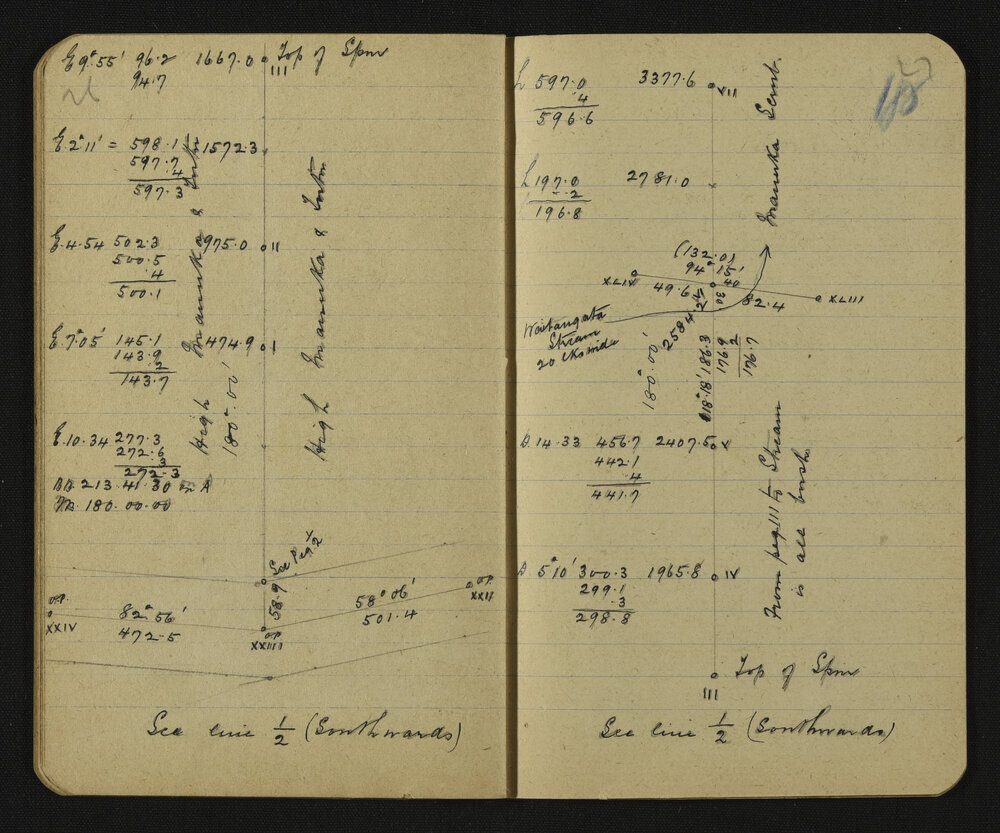 E 9° 55' 96.2 1667.0 III Top of Spur
94.7
26
E. 2° 11' = 598.1 1572.3
597.7
.4
597.3
E. 4.54 502.3 975.0 II
500.5
.4
500.1
E. 7° 05' 145.1 474.9 I
143.9
.2
143.7
E. 10.34 277.3
272.6
.3
272.3
213.41.30
180.00.00
High Manuka &
180° 00'
High Manuka &
See Peg 1/2
58.9
XXIV
82° 56'
472.5
XXIII
58° 06'
501.4
XXII
See line 1/2 (Southwards)
L 597.0 3377.6 VII
.4
596.6
27
L 197.0 2781.0
.2
196.8
Manuka
(132.0)
94° 15'
XLIV 49.6 40 82.4 XLIII
30
24
2584
Waitangata
Stream
20 lks wide
180° 00'
D 18° 18' 186.3
176.9
.2
176.7
D. 14.33 456.7 2407.5 V
442.1
.4
441.7
D 5° 10' 300.3 1965.8 IV
299.1
.3
298.8
From peg III to Stream
is all bush
III Top of Spur
See line 1/2 (Southwards)